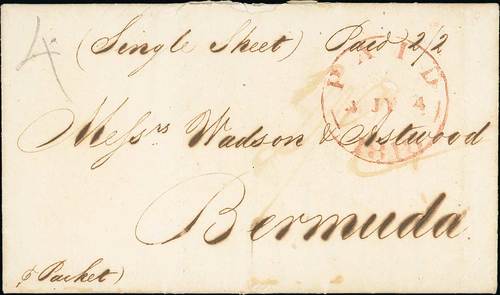 4 (Single Sheet) Paid 2/2
PAID
JY 4
Messrs Wadson & Astwood
Bermuda
Packet)